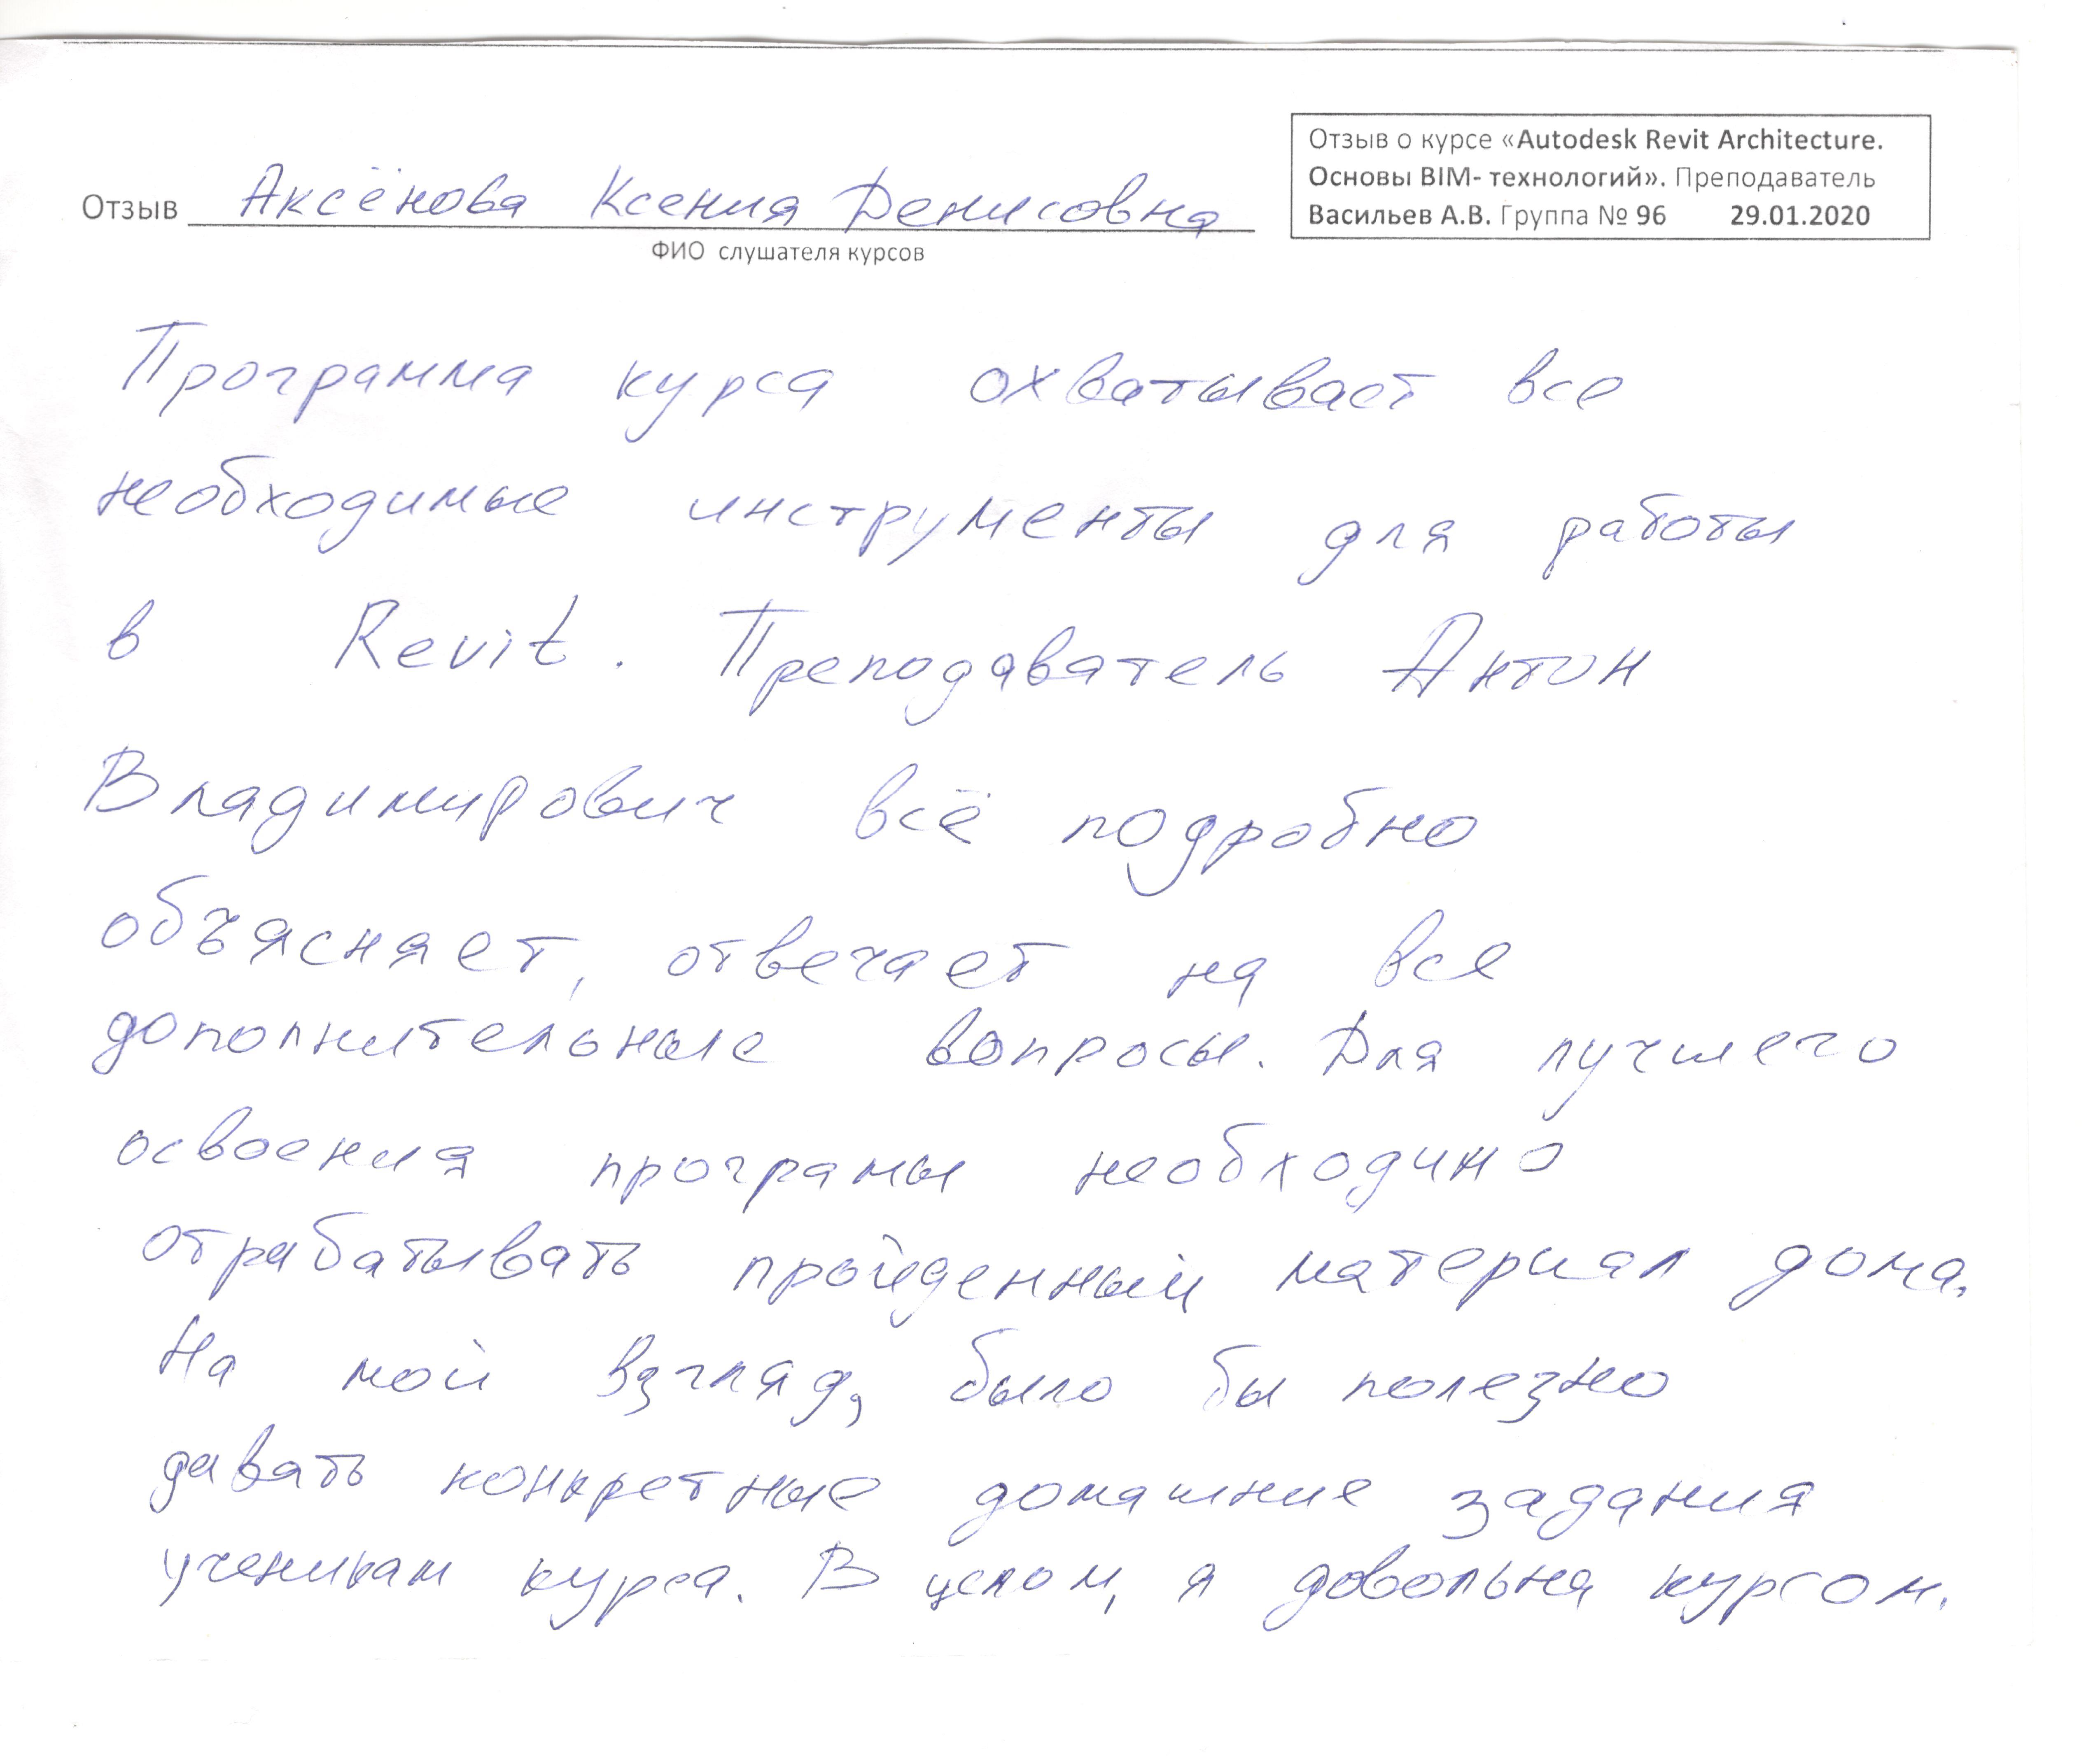 Отзыв о курсе «Autodesk Revit Architecture.
Основы BIM- технологий». Преподаватель
Васильев А.В. Группа № 96 29.01.2020
Отзыв Аксёнова Ксения Денисовна
ФИО слушателя курсов
Программа курса охватывает все
необходимые инструменты для работы
в Revit. Преподаватель Антон
Владимирович всё подробно
объясняет, отвечает на все
дополнительные вопросы. Для лучшего
освоения програмы необходимо
отрабатывать пройденный материал дома.
На мой взгляд, было бы полезно
давать конкретные домашние задания
ученикам курса. В целом, я довольна курсом.